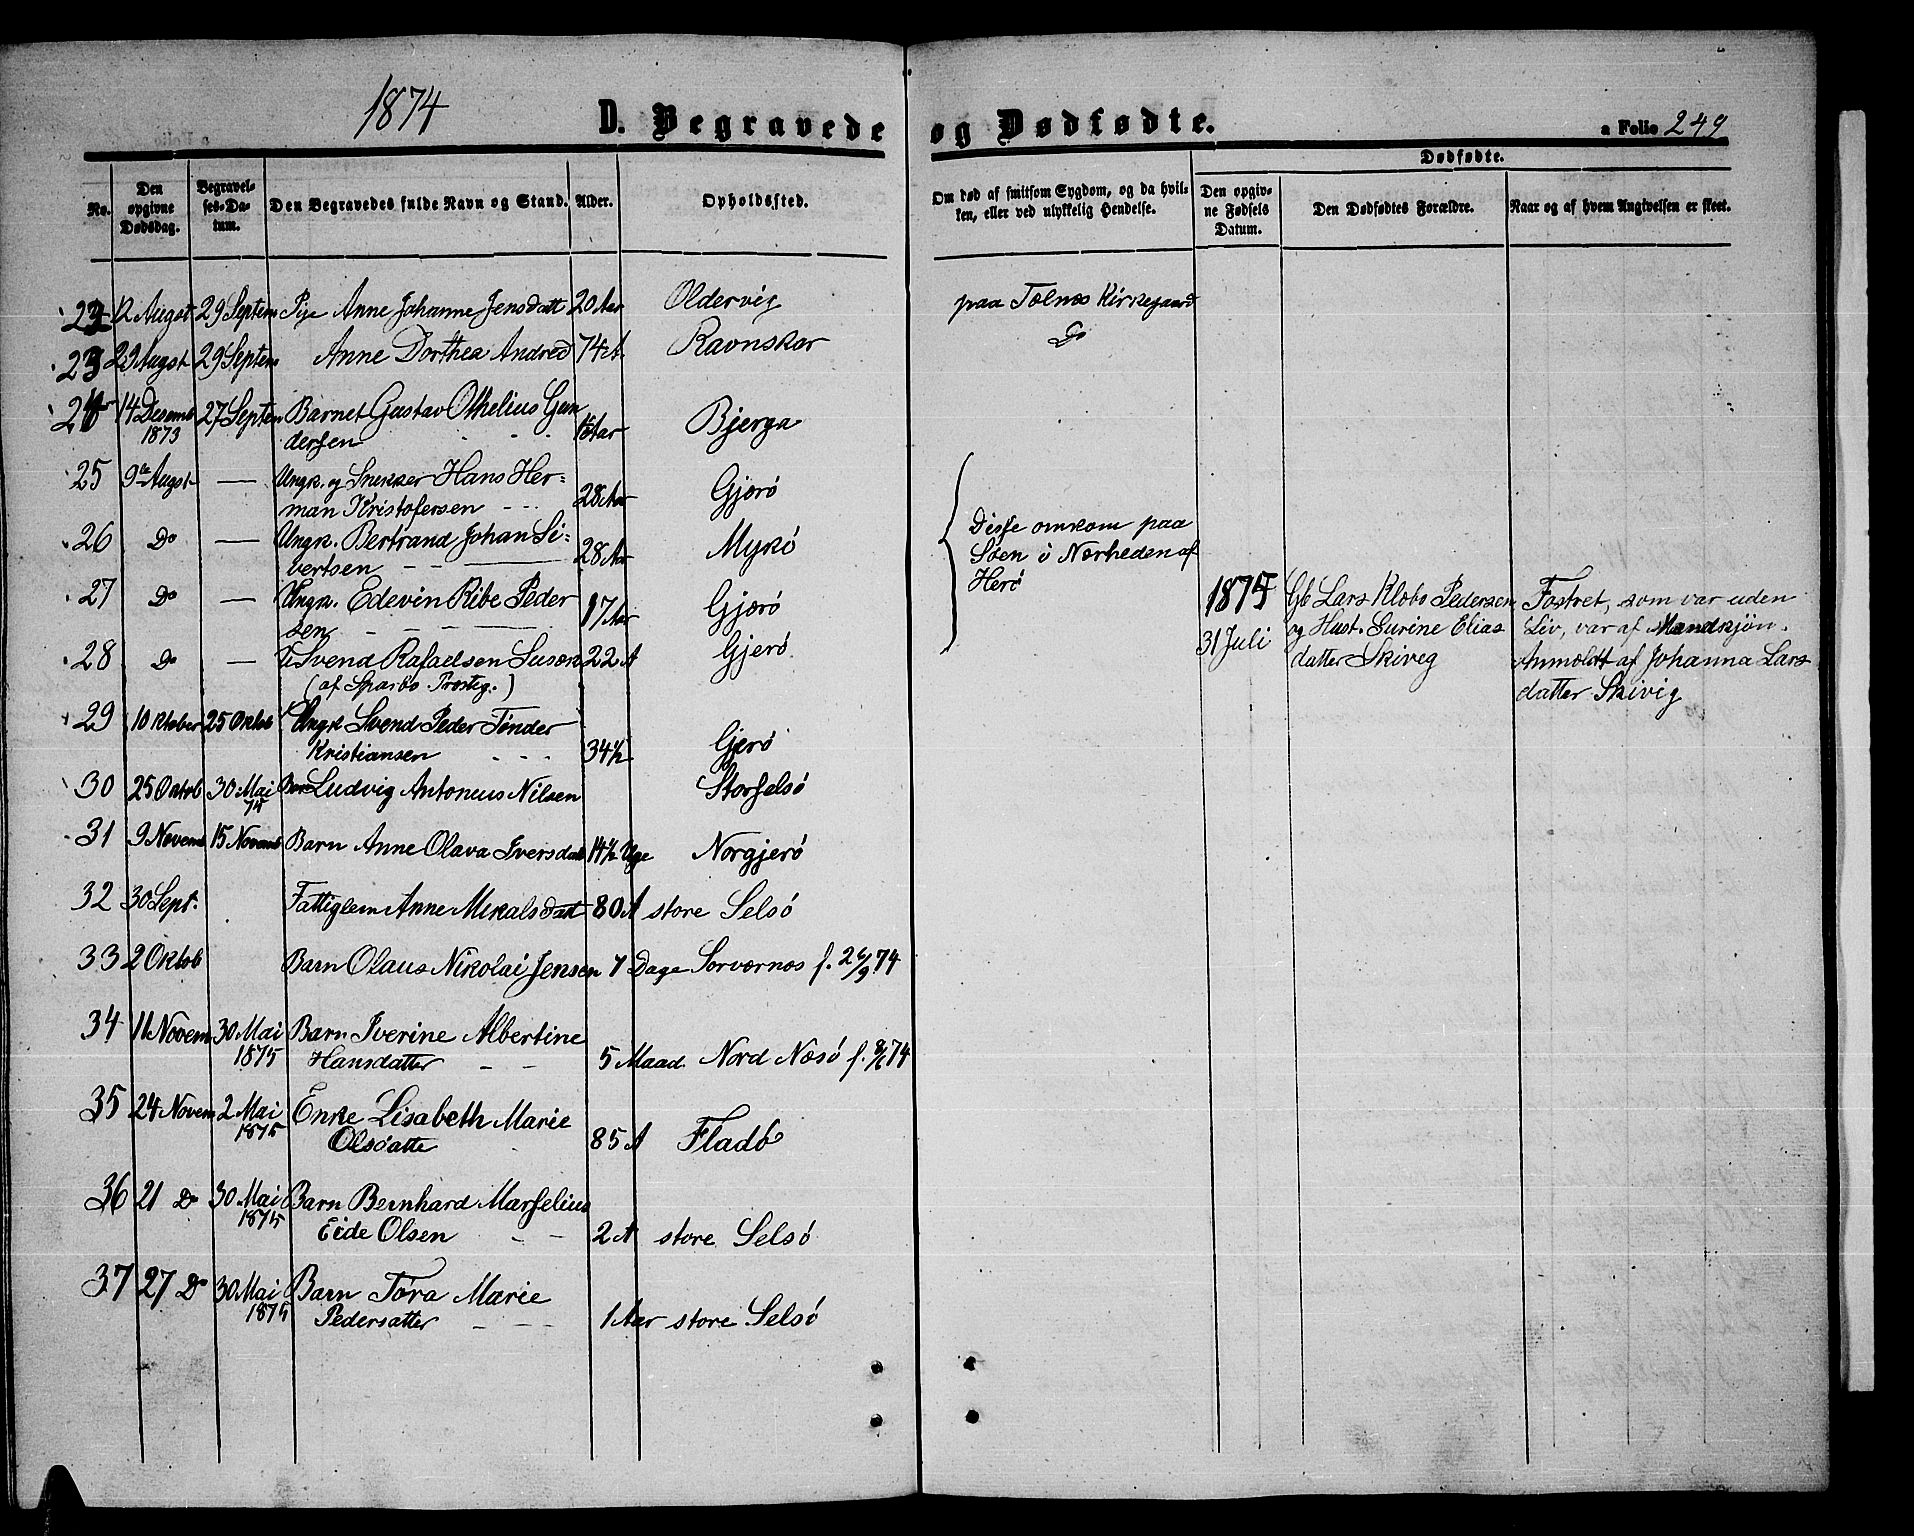 1874
D. Begravede og Dødfødte.
a Folio 249
No.
Den opgivne Dødsdag.
Begravelses-Datum.
Den Begravedes fulde Navn og Stand.
Alder.
Opholdssted.
Om død af smitsom Sygdom, og da hvilken, eller ved ulykkelig Hendelse.
Dødfødte.
Den opgivne Fødsels Datum.
Den Dødfødtes Forældre.
Naar og af hvem Angivelsen er skeet.
12 Augst 29 Septem Pige Anne Johanne Jensdatt 20 Aar Oldervig paa Tælnes Kirkegaard
23 29 Augst 29 Septem Anne Dorthea Andred 74 A. Ravnskar Do
24 14 Desemb 27 Septem Barnet Gustav Othelius Gun
1873 dersen Aar Bjerga
25 9de Augst — Ungk. og Snekker Hans Her-
man Kristofersen - - - 28 Aar Gjerø
26 Do — Ungk. Bertrand Johan Si-
bertsen — — 28 Aar Mykø
Disse omkom paa
Søen i Nærheden af
Herø
27 Do — Ungk. Edevin Ribe Peder
sen — — 17 Aar Gjærø
28 Do — Svend Rafaelsen 22 A Gjerø
(af Sparbo Præsteg.)
29 10 Ktober 25 Oktob Ungk Svend Peder Tønder
Kristiansen - - - 34½ Gjerø
30 25 Oktob 30 Mai Barn Ludvig Antonius Nilsen Storselsø
75
31 9 Novemb 15 Novemb Barn Anne Olava Iversdatt 14½ Uge Norgjerø
32 30 Sept. Fattiglem Anne Mikalsdatt 80 A store Selsø
33 2 Oktob Barn Olaus Nikolai Jensen 7 Dage Sørværnes f. 26/9 74
34 11 Novem 30 Mai Barn Iverine Albertine
1875 Hansdatter - - 5 Maad. Nord Næsø f. 8/6 74
35 24 Novem 2 Mai Enke Lisabeth Marie
1875 Olsdatte - 85 A Fladø
36 21 Do 30 Mai Barn Bernhard Marselius
1875 Eide Olsen - - 2 A store Selsø
37 27 Do 30 Mai Barn Tora Marie
1875 Pedersatter - - 1 Aar store Selsø
1875
31 Juli
Gb Lars Klæbo Pedersen
og Hust. Surine Elias
datter Skiveg
Fostret, som var uden
Liv, var af Mandkjøn.
Anmeldt af Johanna Lars
datter Skivig